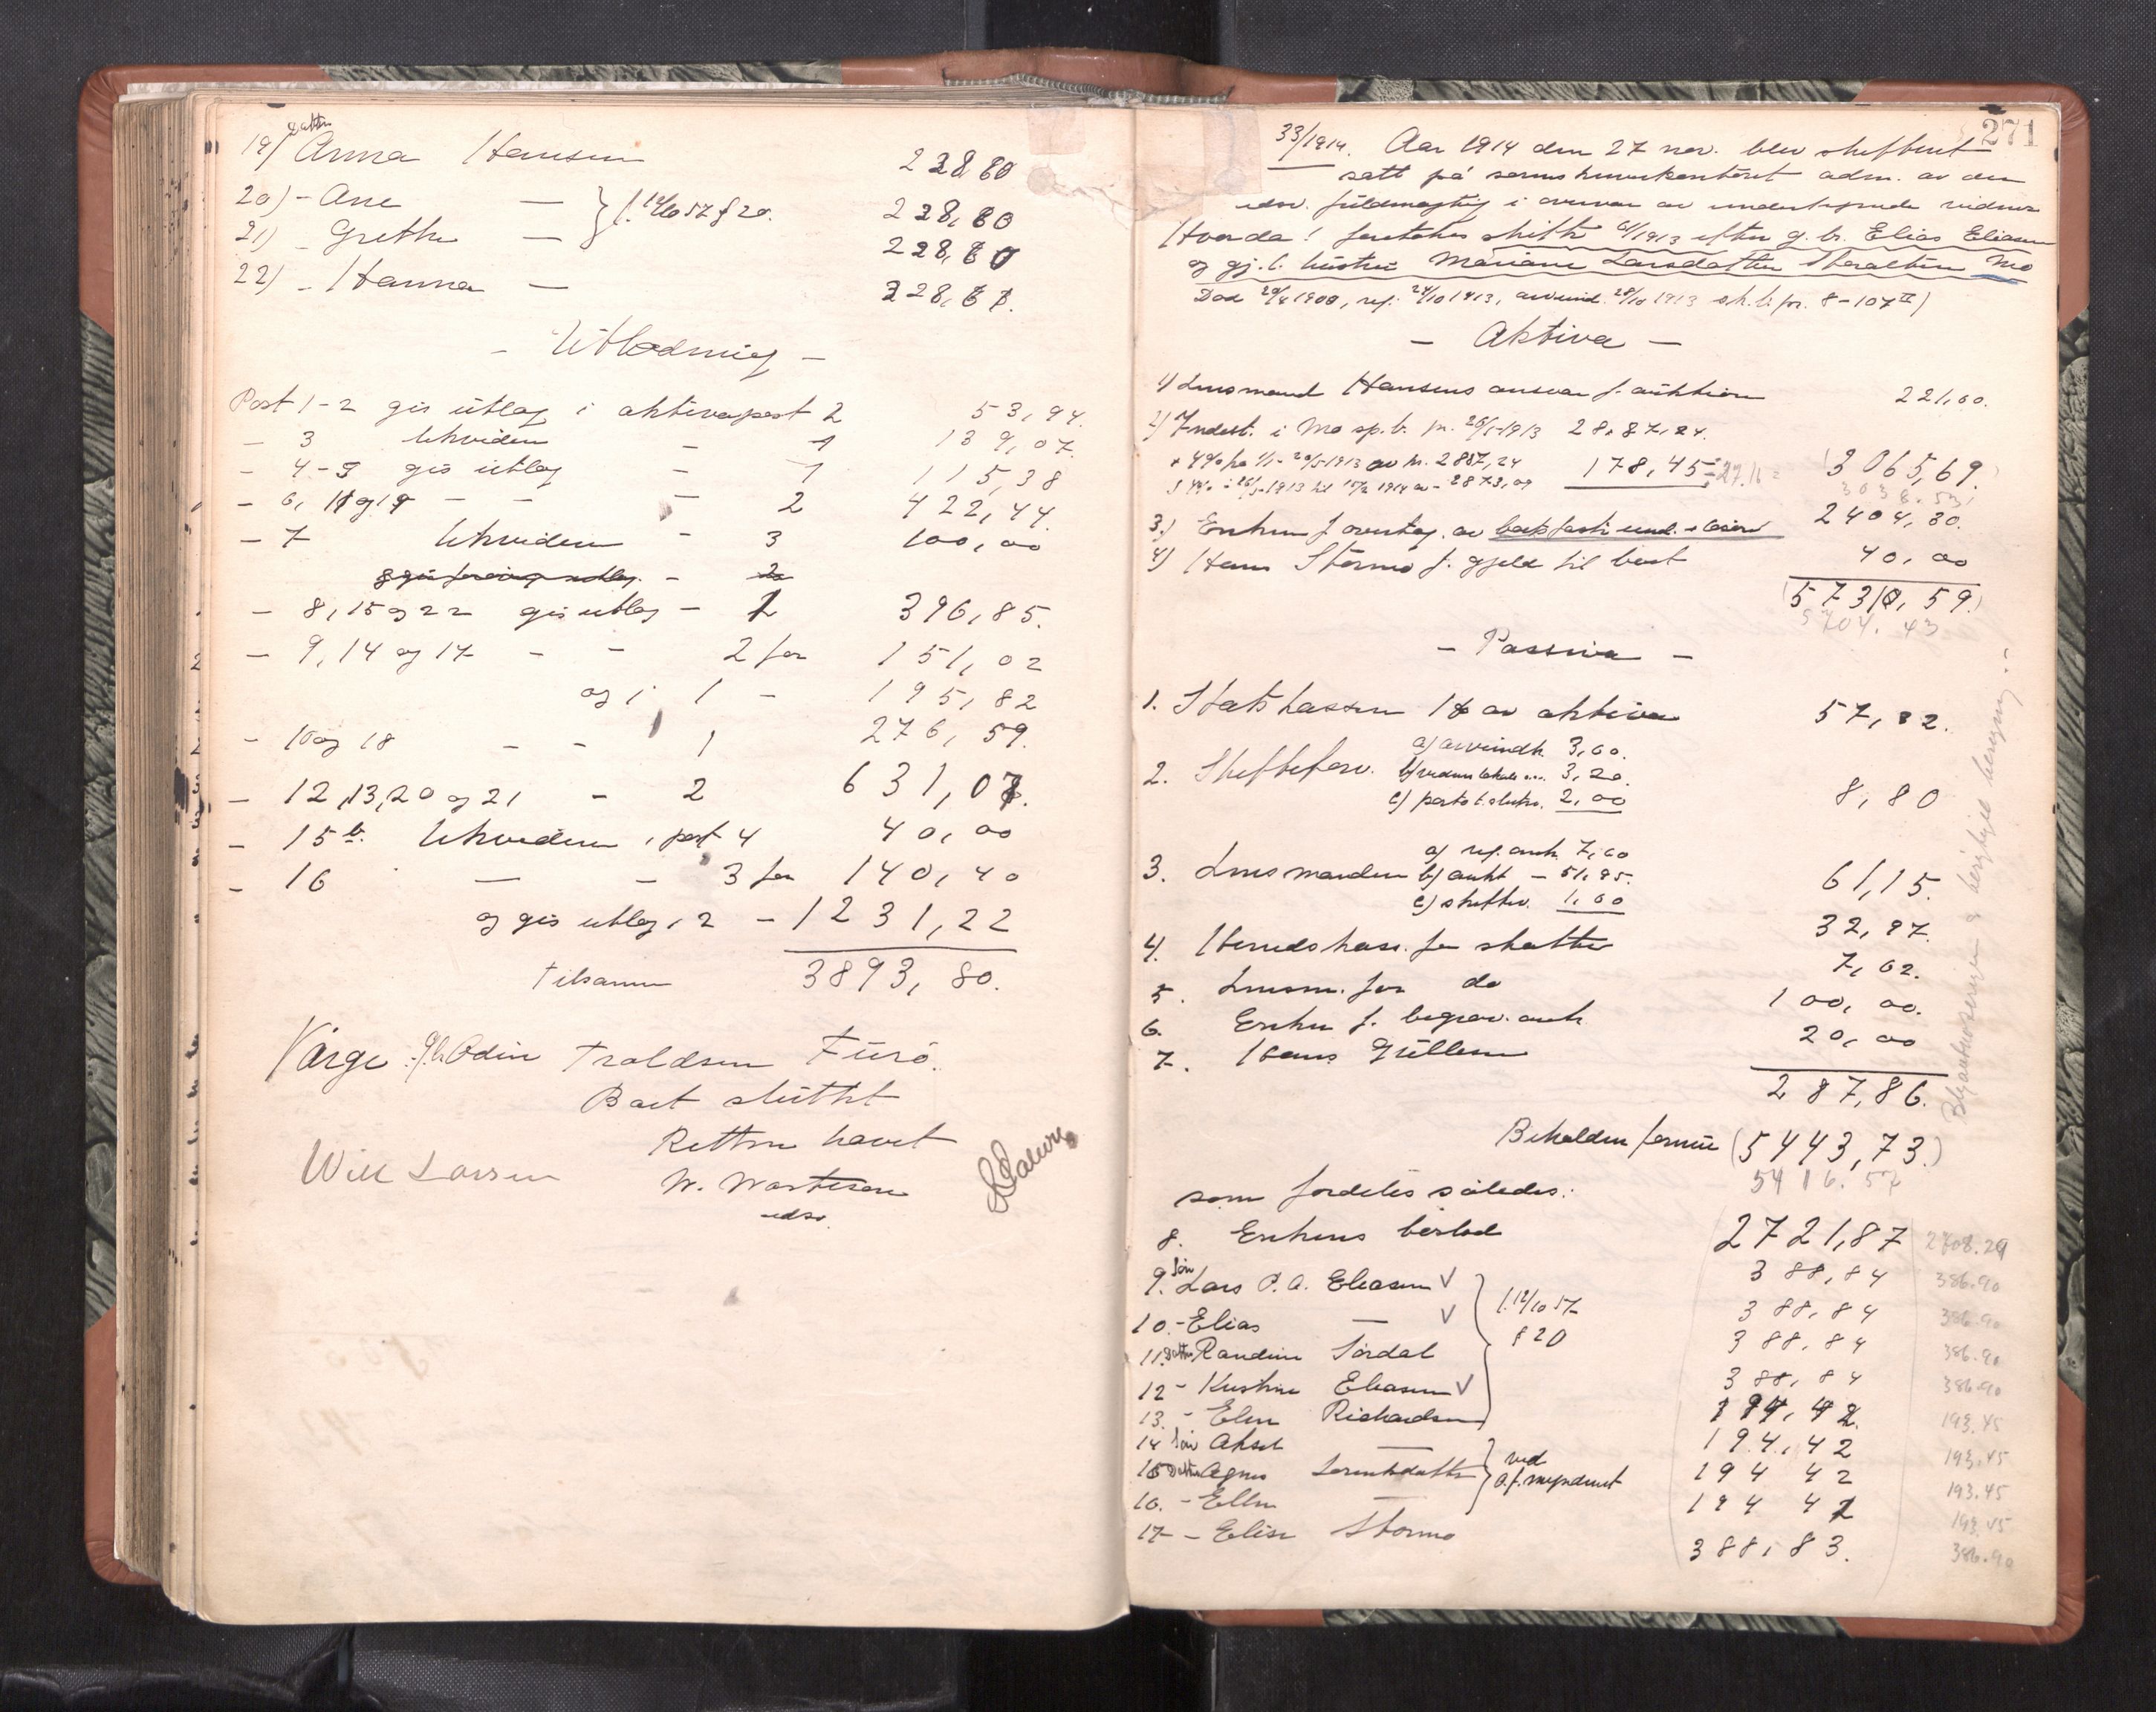 19) Datter Anna Hansen 228,60
20) - Ane — } f. 14/10 57 § 20. 228,60
21) - Grethe — 228,60
22) - Hanna — 228,61.
- Utlodning -
Post 1-2 gis utlæg i aktivapost 2 53,94.
- 3 likvideres - 1 139,07.
- 4-5 gis utlæg - 1 115,38
- 6, 11 og 19 - - - 2 422,44.
- 7 likvideres - 3 100,00
- 8, 15 og 22 gis utlæg - 1 396,85.
- 9, 14 og 17 - - 2 for 151,02
og i 1 - 195,82
- 10 og 18 - - 1 276,59.
- 12, 13, 20 og 21 - 2 631,07.
- 15 b. likvideres i post 4 40,00
- 16 — - 3 for 140,40
og gis utlæg i 2 - 1231,22
Tilsammen 3893,80.
Værge: Odin Traldsen Furø.
Boet sluttet
Retten hævet
Will Larssen
W. Mortensen
edsv.
271
33/1914. Aar 1914 den 27 nov. blev skifteret
satt på sorenskriverkontoret adm. av den
edsv. fuldmægtig i overvær av undertegnede vidner
Hvorda! foretokes skifte 61/1913 efter g. br. Elias Eliasen
og gj. l. hustru Mariane Larsdatter Mo
Død 20/4 1908, reg. 24/10 1913, arveind. 28/10 1913 sk. b. pr. 8-107 II)
- Aktiva -
1) Lensmand Hansens ansvar f. auktion 221,60.
2) Indest. i Mo sp.b. pr. 26/5-1913 2887,24.
+ 4% fra 1/1 - 26/5-1913 av kr. 2887,24
178,45 ÷ 27.16 = (3065,69.)
3038.53
3.) Enken f. overtag. av boets fasti eiend. og løsøre 2404,30.
4) Hans Stormo f. gjeld til boet 40,00
(5731,59.)
5704.43
- Passiva -
1. Statskassen 1% av aktiva 57,32.
2. Skifteforv. a) arveindk. 3,60.
b) vidner lokale m.m. 3,20.
c) porto t. skiftev. 2,00
8,80
3. Lensmanden a) reg. auk. 7,60
b) aukt - 51,95.
c) skiftev. 1,60
61,15.
4. Herredskass. for skatter 32,97.
5. Lensm. for do 7,62.
6. Enken f. begrav. omk 100,00.
7. Hans Gullesen 20,00
287,86.
Beholden formue (5443,73.)
5416.57
som fordeles således:
8. Enkens boslod 2721,87 2708.29
9. Søn Lars P. A. Eliasen V 388,84 386.90
10. - Elias — V } f. 14/10 57 § 20 388,84 386.90
11. Datter Randine Sørdal 388,84 386.90
12 - Kristine Eliasen V 388,84 386.90
13. - Elen Richardsen 194,42 193.45
14 Søn Aksel — 194,42 193.45
15 Datter Agnes Lorentsdatter } ved o.f. myndiret 194 42 193.45
16. - Ellen — 194 42 193.45
17 - Elise Stormo 388,83. 386.90